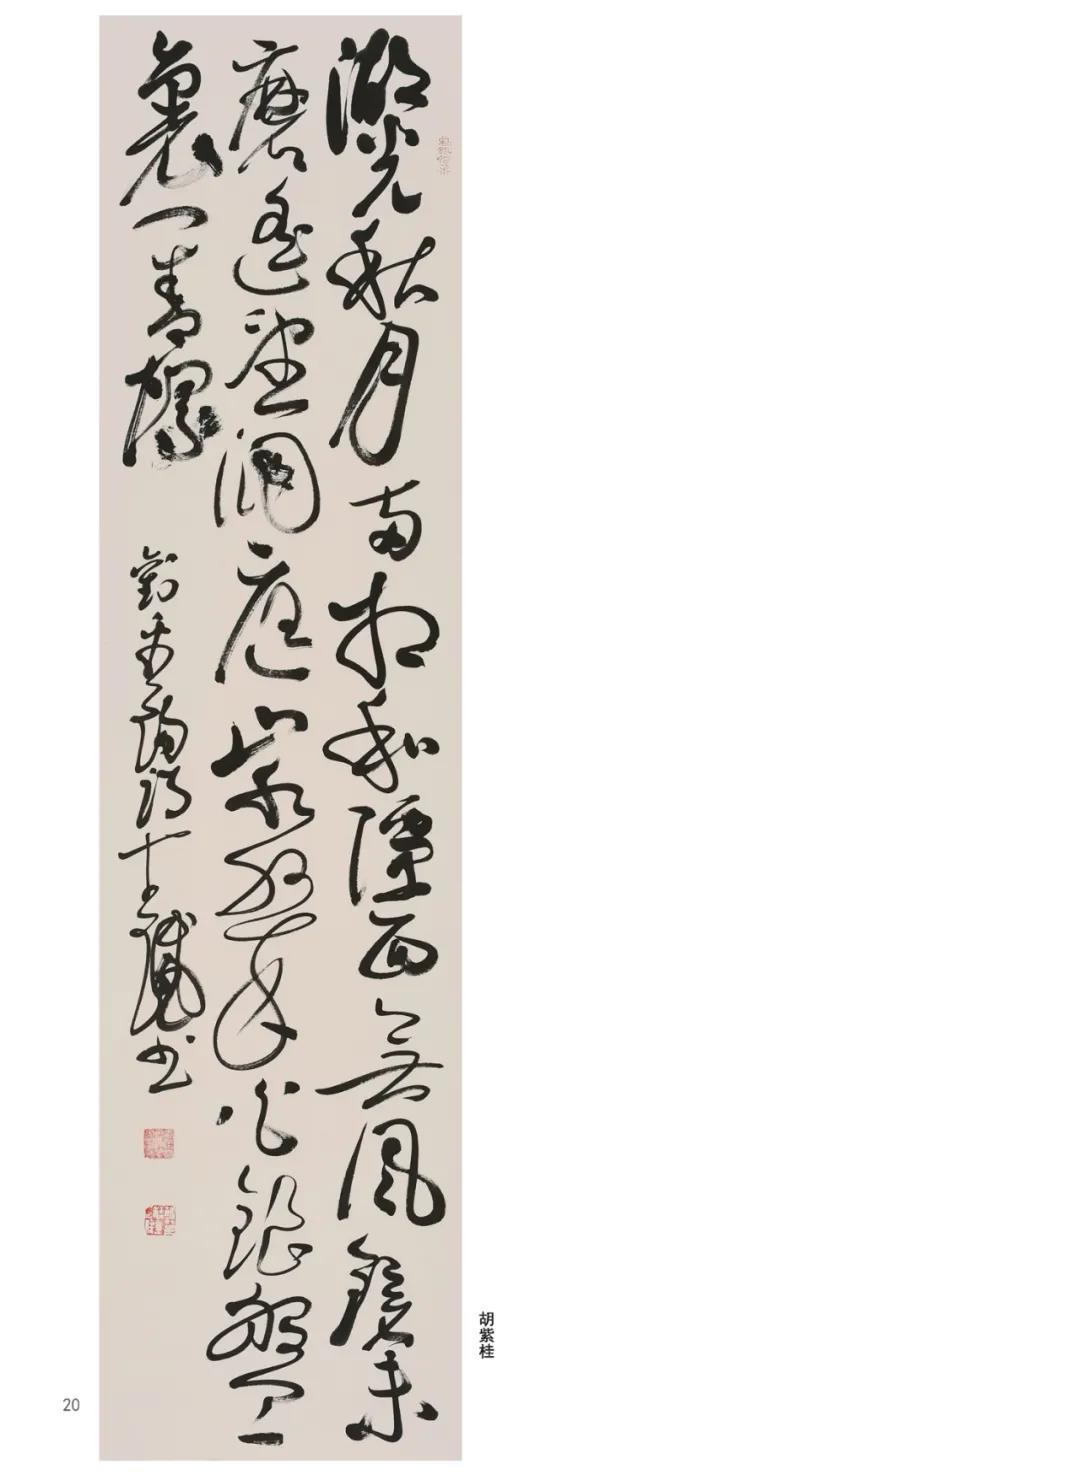 湖光秋月兩相和潭面無風鏡未
磨遙望洞庭山水翠白銀盤
裏一青螺
劉 詩 書
胡紫桂
20